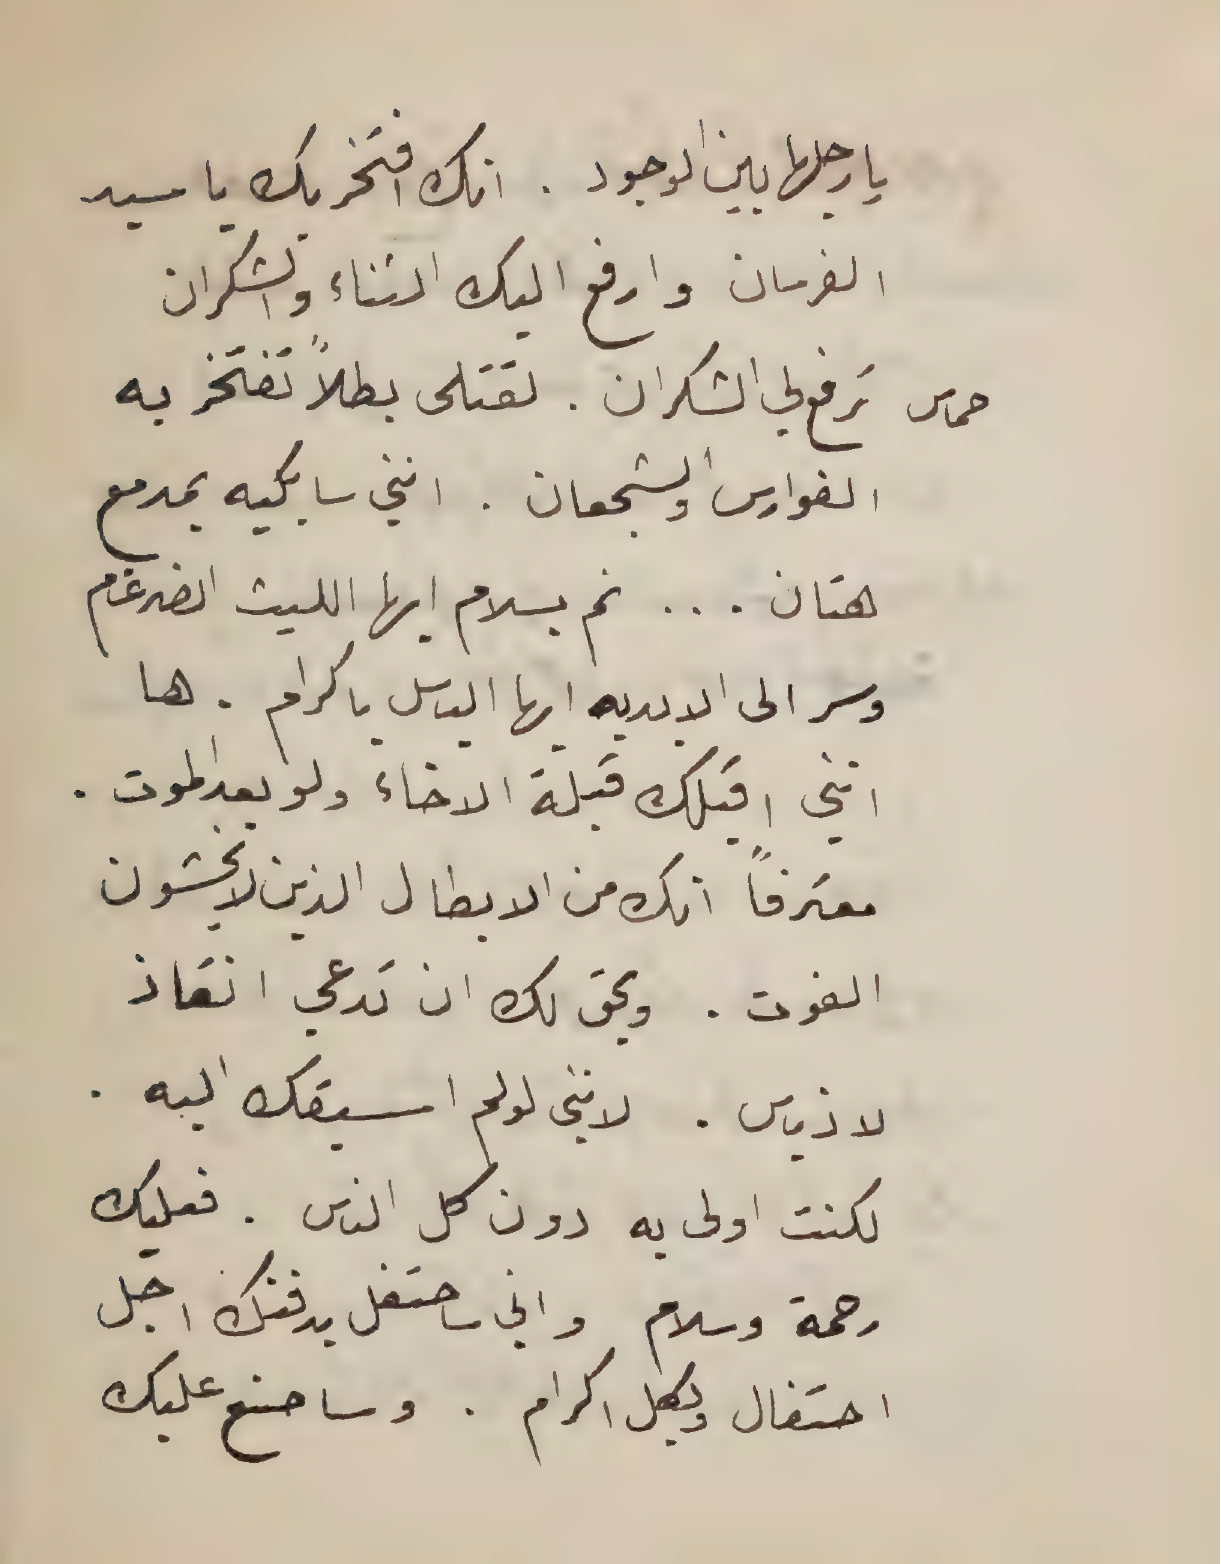 يا رجلها بين الوجود . انك افتخر بك يا سيد
الفرسان وارفع اليك الثناء والشكران
حماس ترفع لي الشكران . لقتلى بطلاً تفتخر به
الفوارس والشجعان . انني سابكيه بمدمع
هتان ... نم بسلام ايها الليث الضرغام
وسر الى الابديه ايها الباسل باكرام . ها
انني اقبلك قبلة الاخاء ولو بعد الموت .
معترفاً انك من الابطال الذين لا يخشون
الفوت . ويحق لك ان تدعي انقاذ
لاذياس . لانني لو لم اسبقك اليه .
لكنت اولى به دون كل الناس . فعليك
رحمة وسلام واني ساحتفل بدفنك اجل
احتفال وبكل اكرام . وساصنع عليك